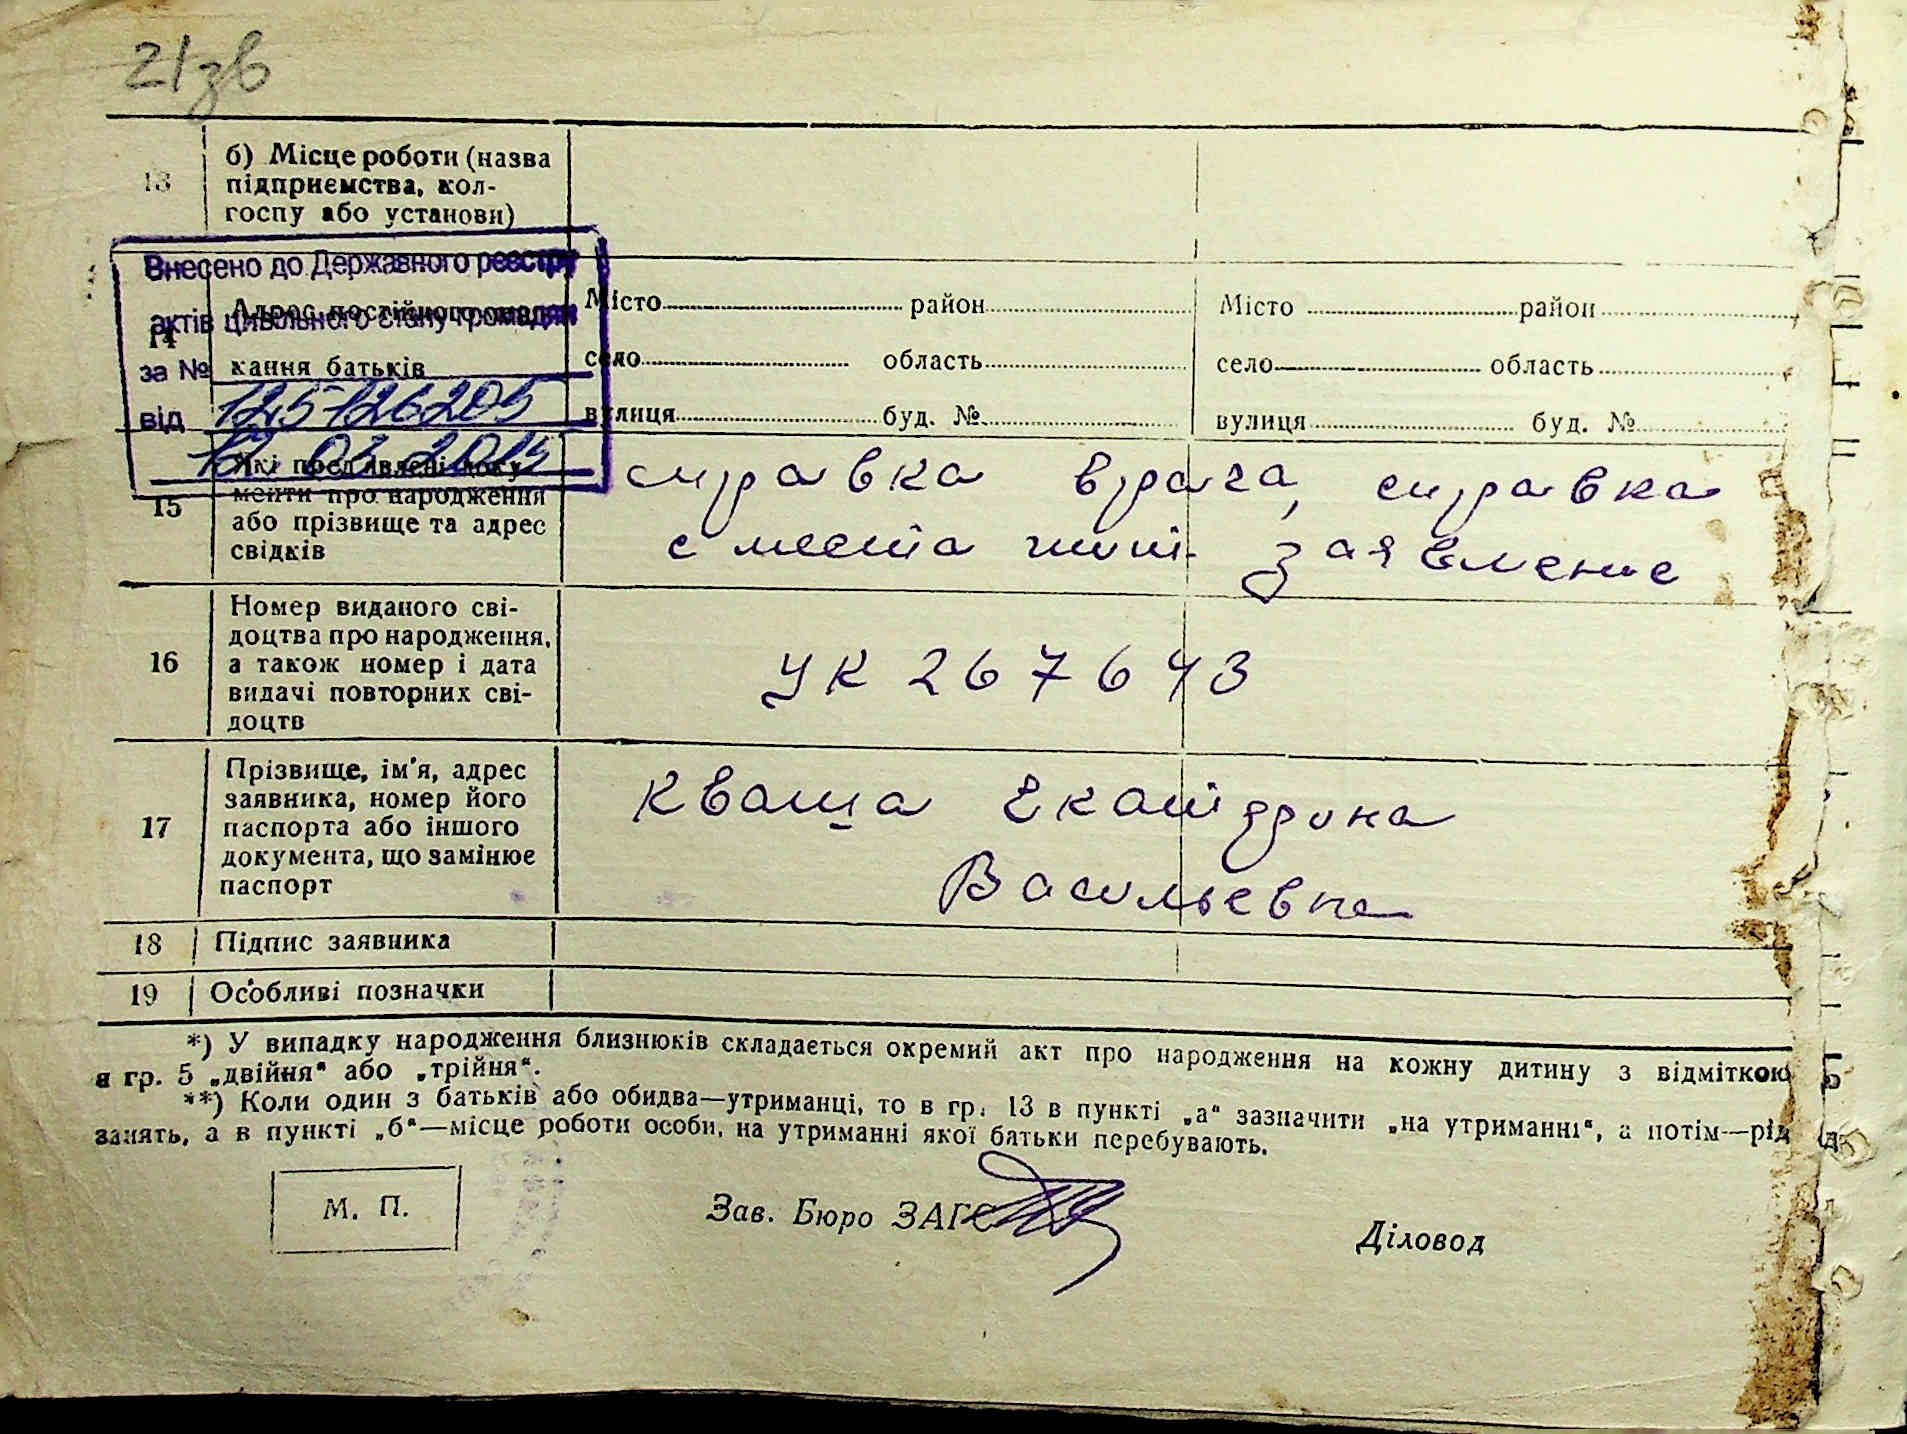 21зв
13
б) Місце роботи (назва
підприємства, кол-
госпу або установи)
Внесено до Державного реєстру
актів цивільного стану громадян
за № 125126205
від 12 03 2015
14
Адрес постійного
кання батьків
Місто район
село область
вулиця буд. №
Місто район
село область
вулиця буд. №
15
Які пред'явлені доку-
менти про народження
або прізвище та адрес
свідків
справка врача, справка
с места жит. заявление
16
Номер виданого сві-
доцтва про народження,
а також номер і дата
видачі повторних сві-
доцтв
УК 267643
17
Прізвище, ім'я, адрес
заявника, номер його
паспорта або іншого
документа, що замінює
паспорт
Кваша Екатерина
Васильевна
18 Підпис заявника
19 Особливі позначки
*) У випадку народження близнюків складається окремий акт про народження на кожну дитину з відміткою
в гр. 5 „двійня“ або „трійня“.
**) Коли один з батьків або обидва—утриманці, то в гр. 13 в пункті „а“ зазначити „на утриманні“, а потім—рід
занять, а в пункті „б“—місце роботи особи, на утриманні якої батьки перебувають.
М. П.
Зав. Бюро ЗАГС
Діловод